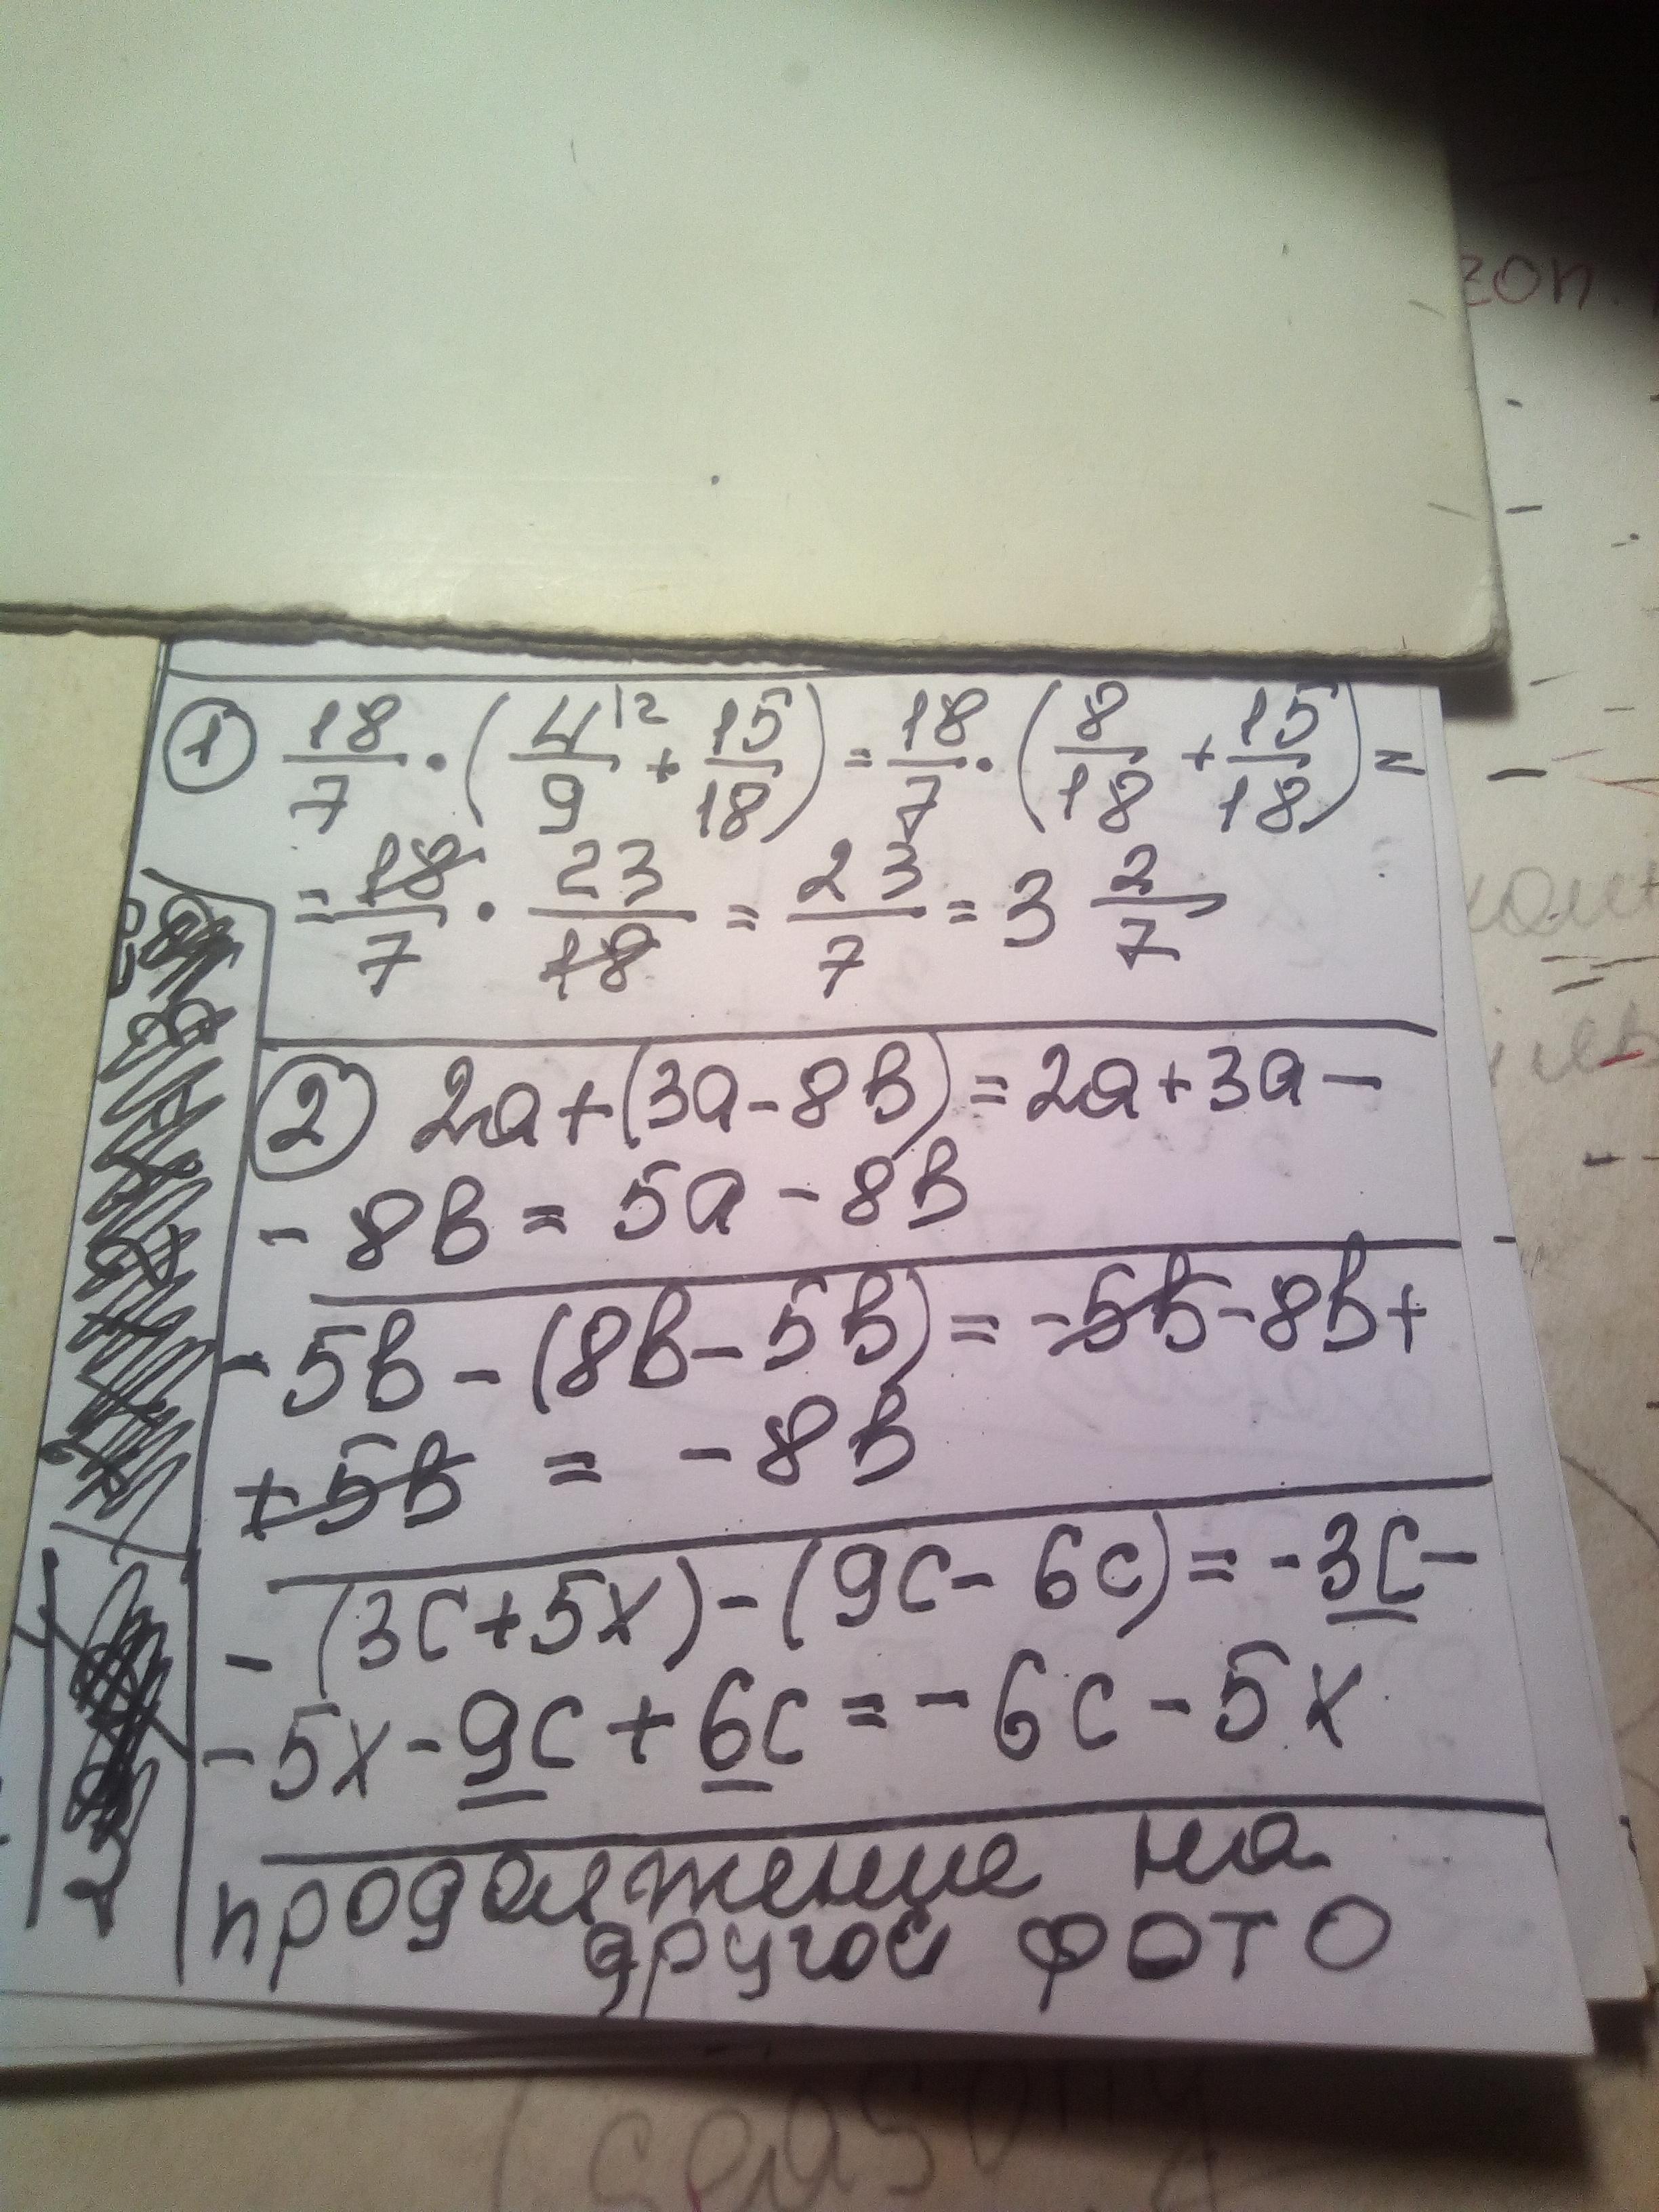 ① 18/7 · (4/9 |2 + 15/18) = 18/7 · (8/18 + 15/18) =
= 18/7 · 23/18 = 23/7 = 3 2/7
② 2a + (3a - 8в) = 2a + 3a -
- 8в = 5a - 8в
- 5в - (8в - 5в) = - 5в - 8в +
+ 5в = - 8в
- (3c + 5x) - (9c - 6c) = - 3c -
- 5x - 9c + 6c = - 6c - 5x
продолжение на
другой фото